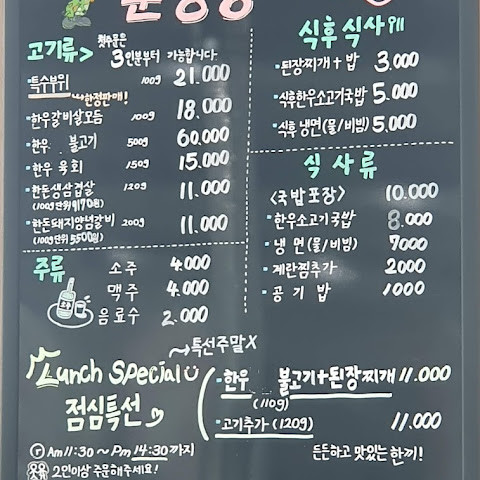 고기류> 첫주문은 3인분부터 가능합니다
특수부위 100g 21.000
한정판매!
한우갈비살모듬 100g 18.000
한우 불고기 500g 60.000
한우 육회 150g 15.000
한돈생삼겹살 120g 11.000
(100g단위 9170원)
한돈돼지양념갈비 200g 11.000
(100g단위 5500원)
주류
소주 4.000
맥주 4.000
음료수 2.000
식후식사
된장찌개+밥 3.000
식후한우소고기국밥 5.000
식후 냉면(물/비빔) 5.000
식사류
<국밥포장> 10.000
한우소고기국밥 8.000
냉면(물/비빔) 7000
계란찜추가 2000
공기밥 1000
Lunch Special
점심특선
특선주말X
한우 불고기+된장찌개 11.000
(110g)
고기추가 (120g) 11.000
Am 11:30 ~ Pm 14:30까지
2인이상 주문해주세요!
든든하고 맛있는 한끼!